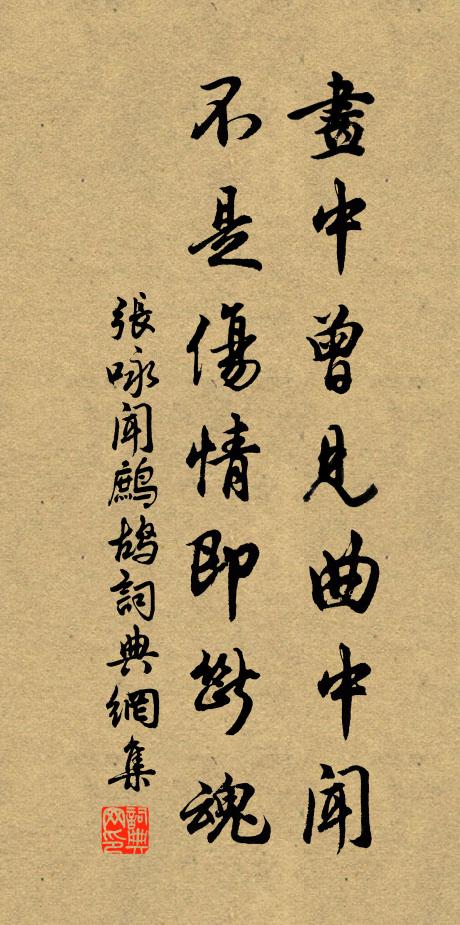 畫中曾見曲中聞
不是傷情即斷魂
張咏聞鷓鴣詞典網集
詞典網印